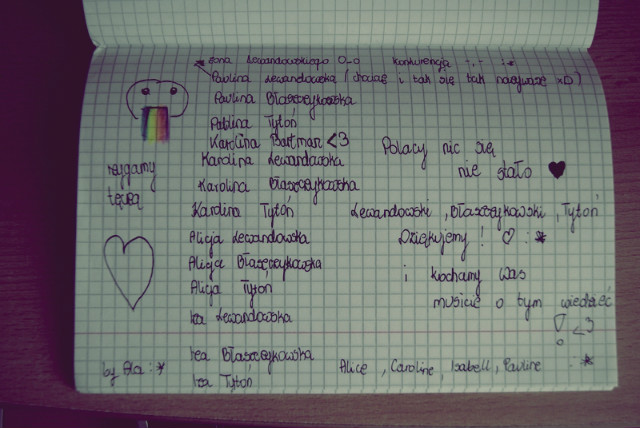 * żona Lewandowskiego O_o konkurencja -.- :*
Paulina Lewandowska (chociaż i tak się tak nazywasz xD)
Paulina Błaszczykowska
Paulina Tytoń
Karolina Bartman <3
Karolina Lewandowska
Karolina Błaszczykowska
Karolina Tytoń
Alicja Lewandowska
Alicja Błaszczykowska
Alicja Tytoń
Iza Lewandowska
Iza Błaszczykowska
Iza Tytoń
rzygamy
tęczą
by Ala :*
Polacy nic się
nie stało ♥
Lewandowski, Błaszczykowski, Tytoń
Dziękujemy! ♡ :*
i kochamy was
musicie o tym wiedzieć
! <3
Alice, Caroline, Isabell, Pauline :*